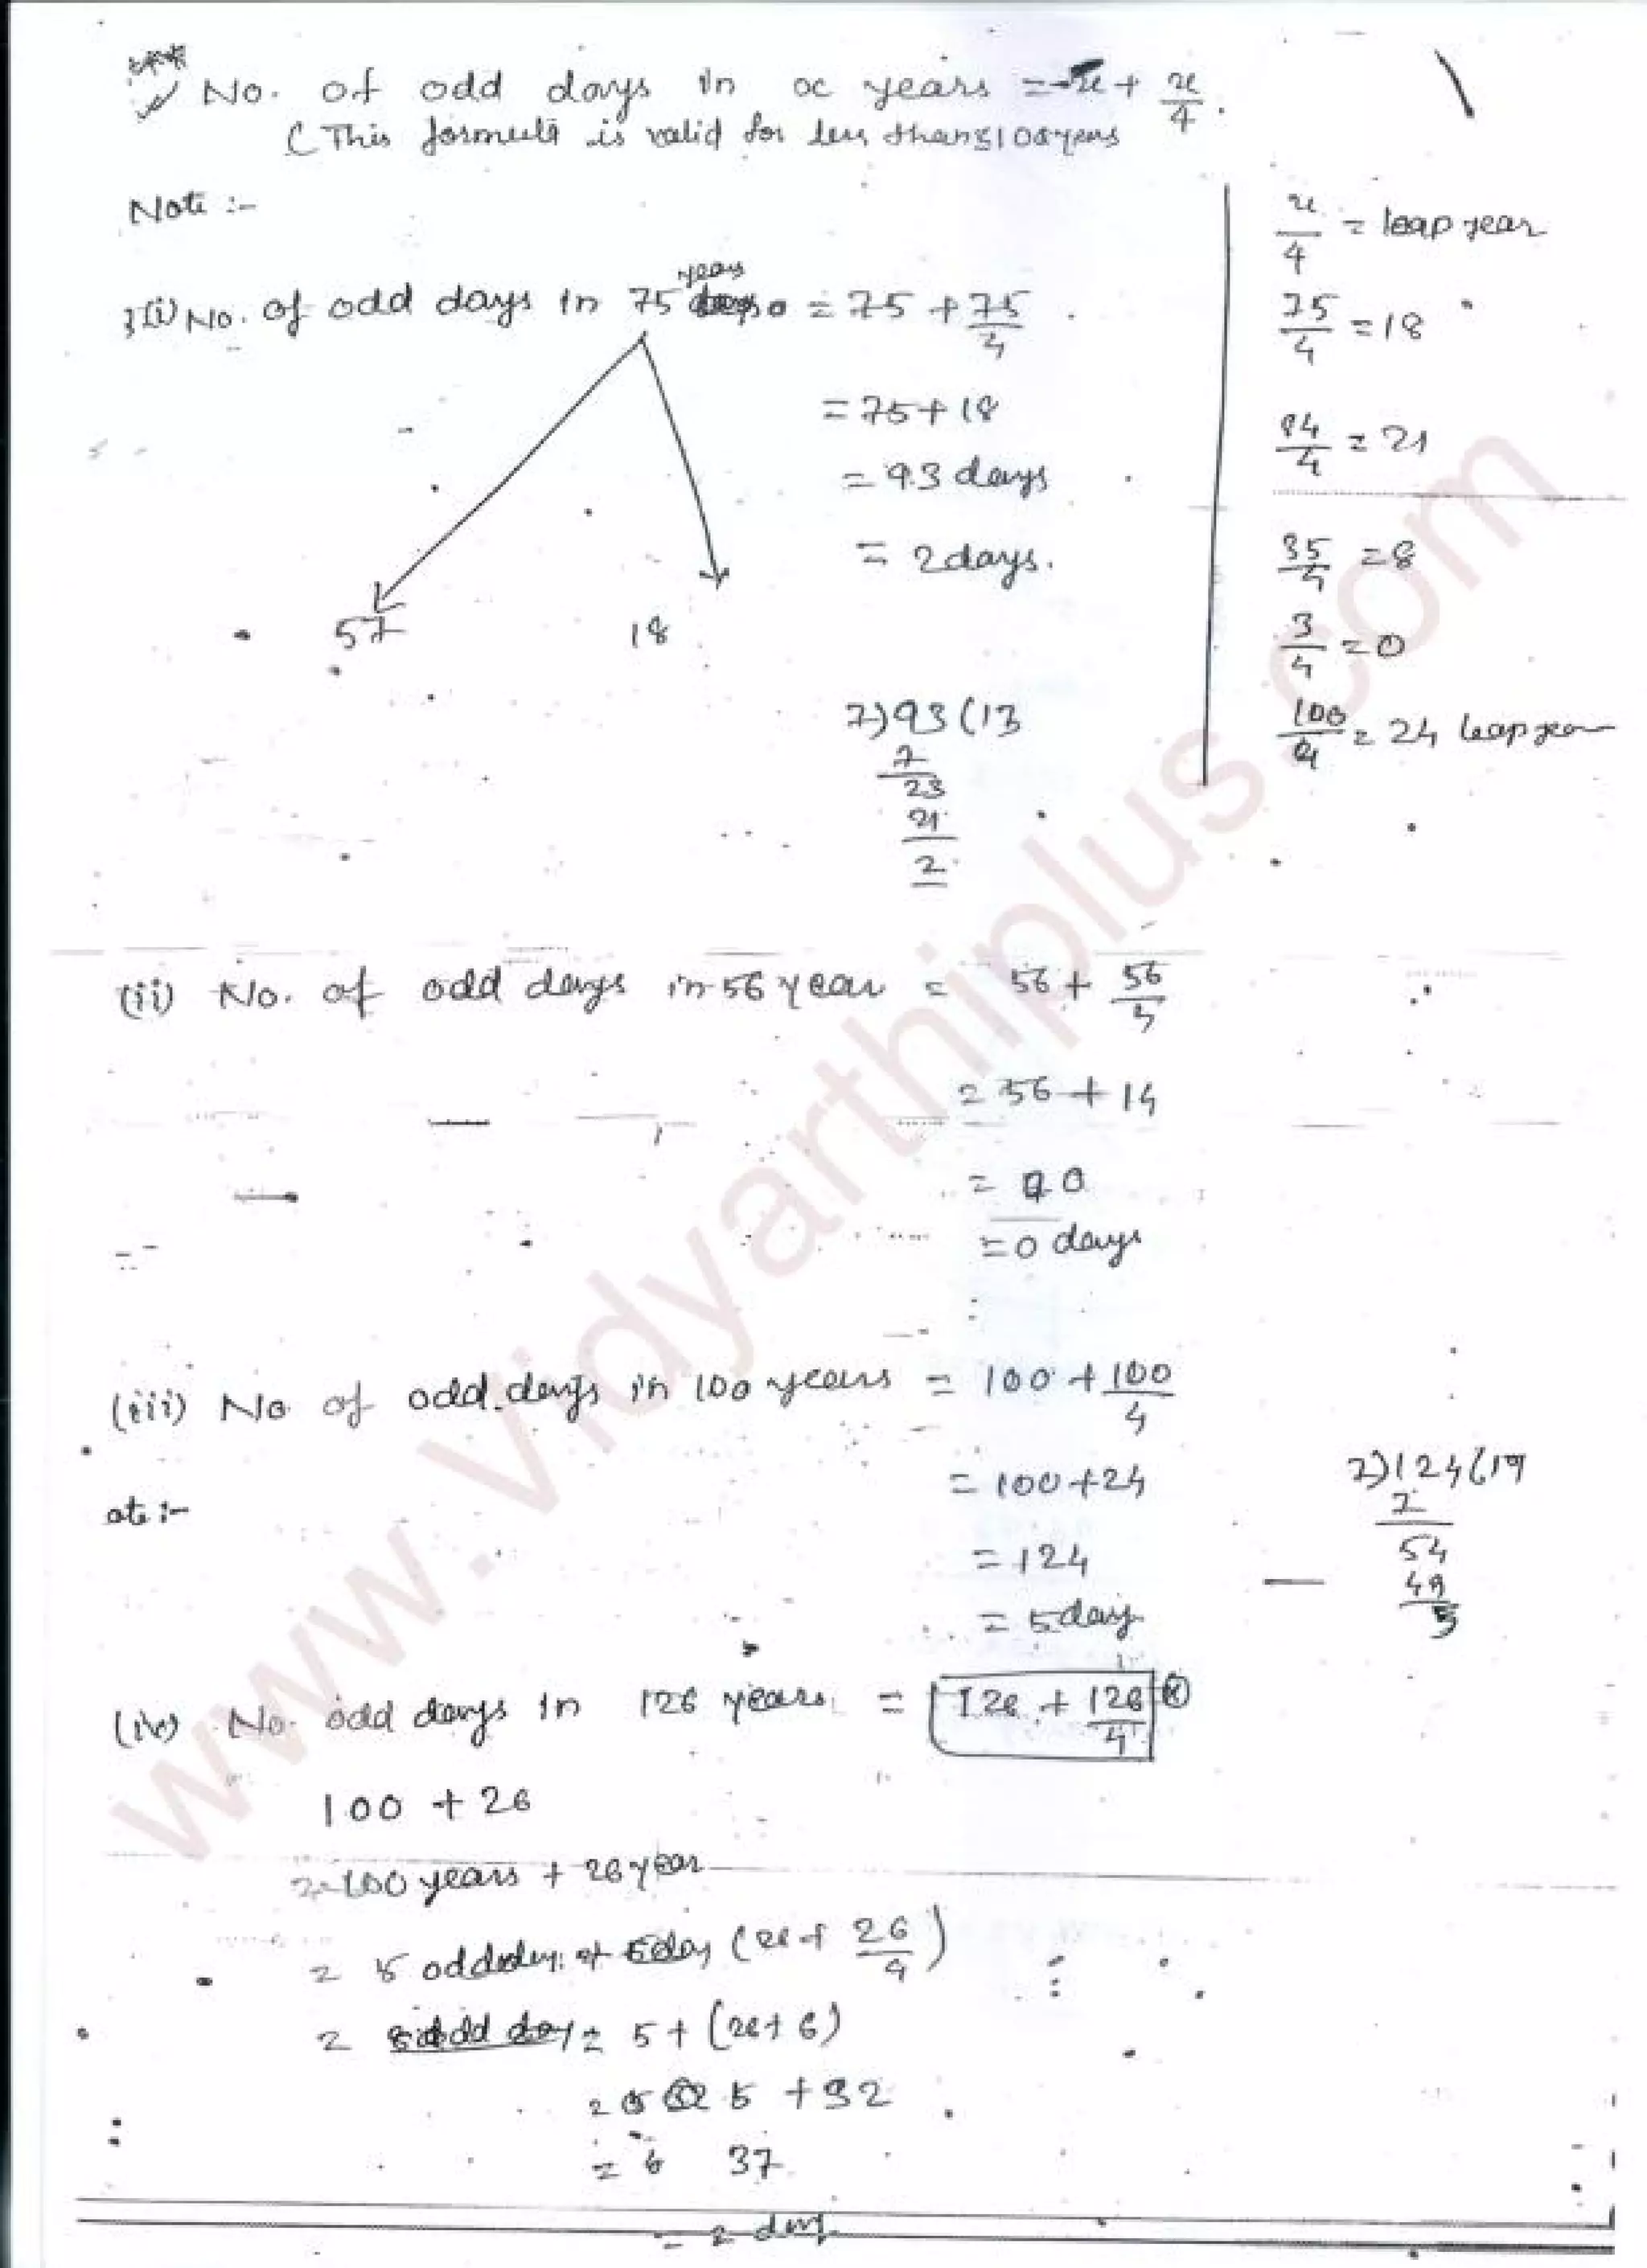 No. of odd days in x years = x + x/4.
(This formula is valid for less than ≤100 years
Note :-
(i) No. of odd days in 75 years = 75 + 75/4
= 75 + 18
= 93 days
= 2 days.
57 18
7)93(13
7
23
21
2
x/4 = leap year
75/4 = 18
84/4 = 21
35/4 = 8
3/4 = 0
100/4 = 24 leap year
(ii) No. of odd days in 56 year = 56 + 56/4
= 56 + 14
= 70
= 0 days
(iii) No of odd days in 100 years = 100 + 100/4
= 100 + 24
= 124
= 5 day
7)124(17
7
54
49
5
ote :-
(iv) No. odd days in 126 years = 126 + 126/4
100 + 26
= 100 years + 26 year
= 5 odd day + (26 + 26/4)
= 5 + (26 + 6)
= 5 + 32
= 37
= 2 day
www.vidyarthiplus.com